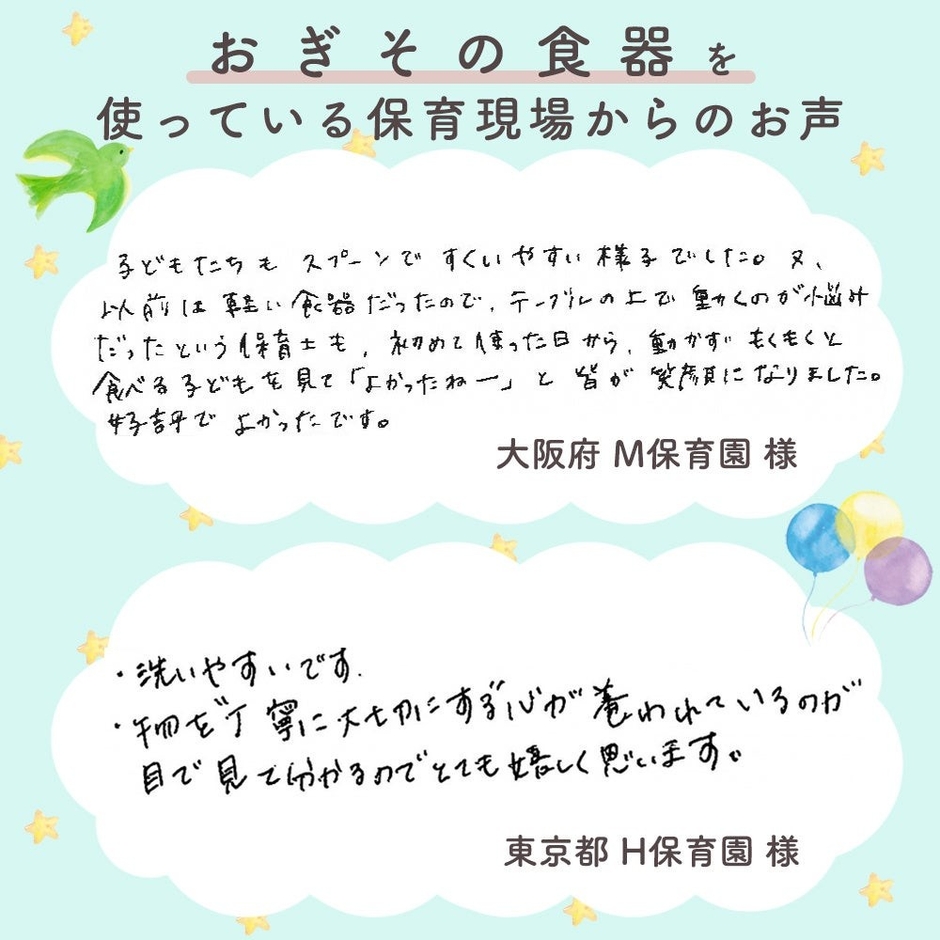 おぎその食器を
使っている保育現場からのお声
子どもたちも スプーンで すくいやすい 様子でした。又、
以前は 軽い 食器だったので、テーブルの上で 動くのが悩み
だったという保育士も、初めて使った日から、動かずに もくもくと
食べる子どもを見て「よかったねー」と 皆が 笑顔になりました。
好評で よかったです。
大阪府 M保育園 様
・洗いやすいです。
・物を丁寧に大切にする心が養われているのが
目で見て分かるのでとても嬉しく思います。
東京都 H保育園 様